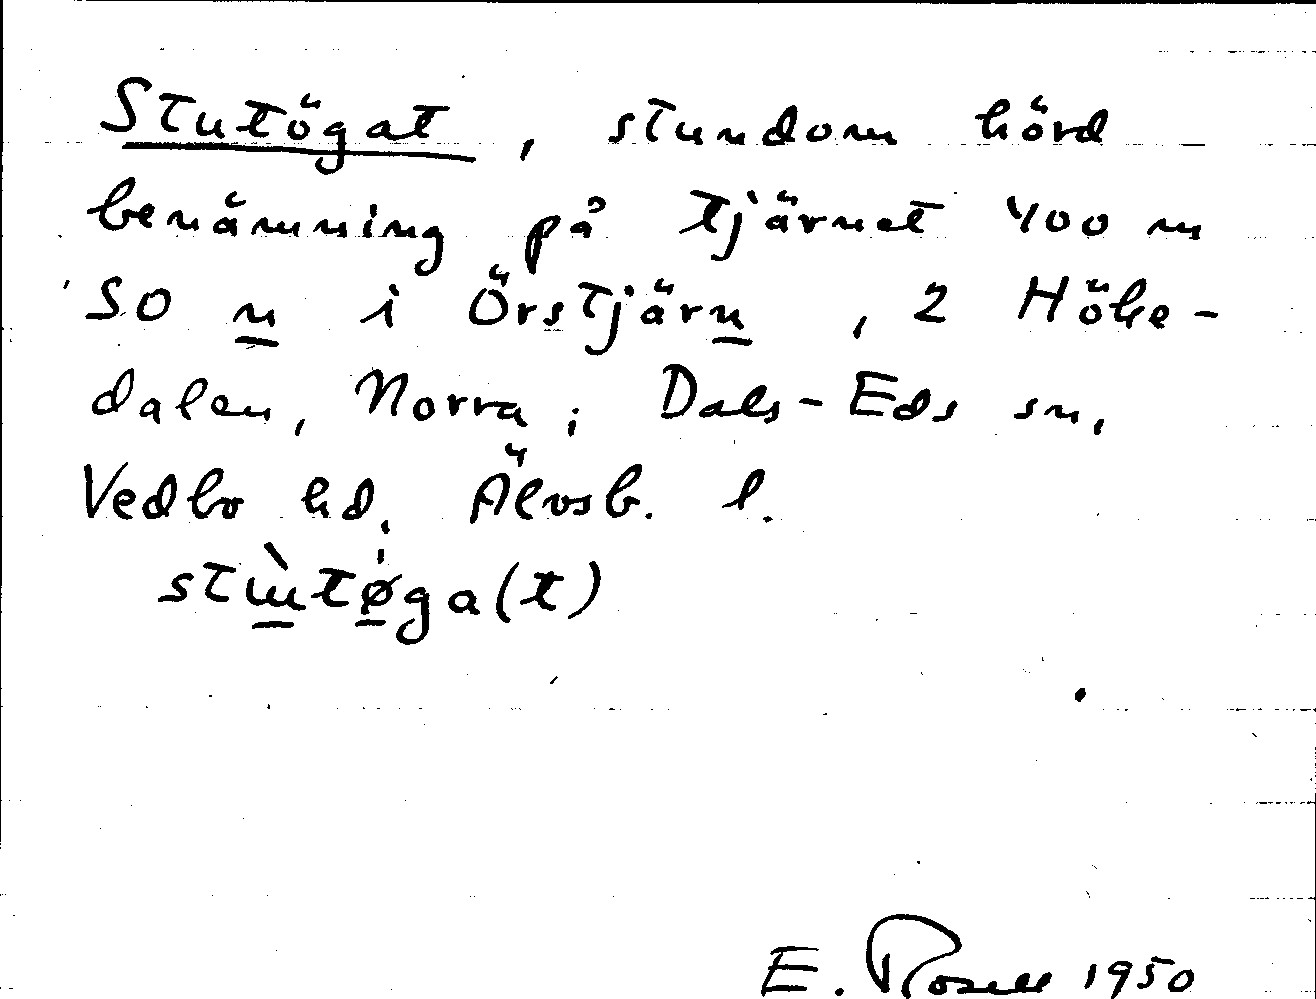 Stutögat, stundom hörd
benämning på tjärnet 400 m
SO n i Örstjärn, 2 Höke-
dalen, Norra; Dals-Eds sn,
Vedbo hd, Älvsb. l.
stɯ̀tǿga(t)
E. Rosell 1950